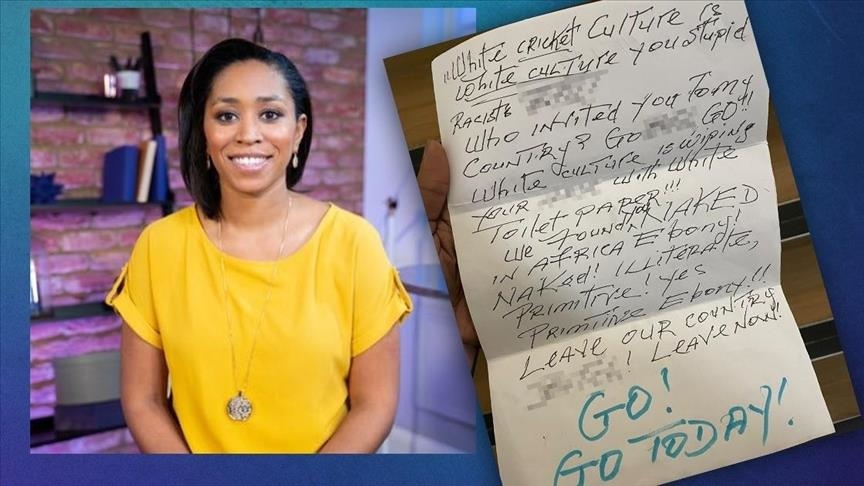 "White cricket Culture is
White culture you stupid
Racists
Who invited you to my
Country? Go Go!!
White culture is wiping
your with white
Toilet paper!!!
We found you NAKED
in Africa Ebony!
Naked! Illiterate,
Primitive! Yes
Primitive Ebony!!
Leave our country
! Leave now!
GO!
GO TODAY!